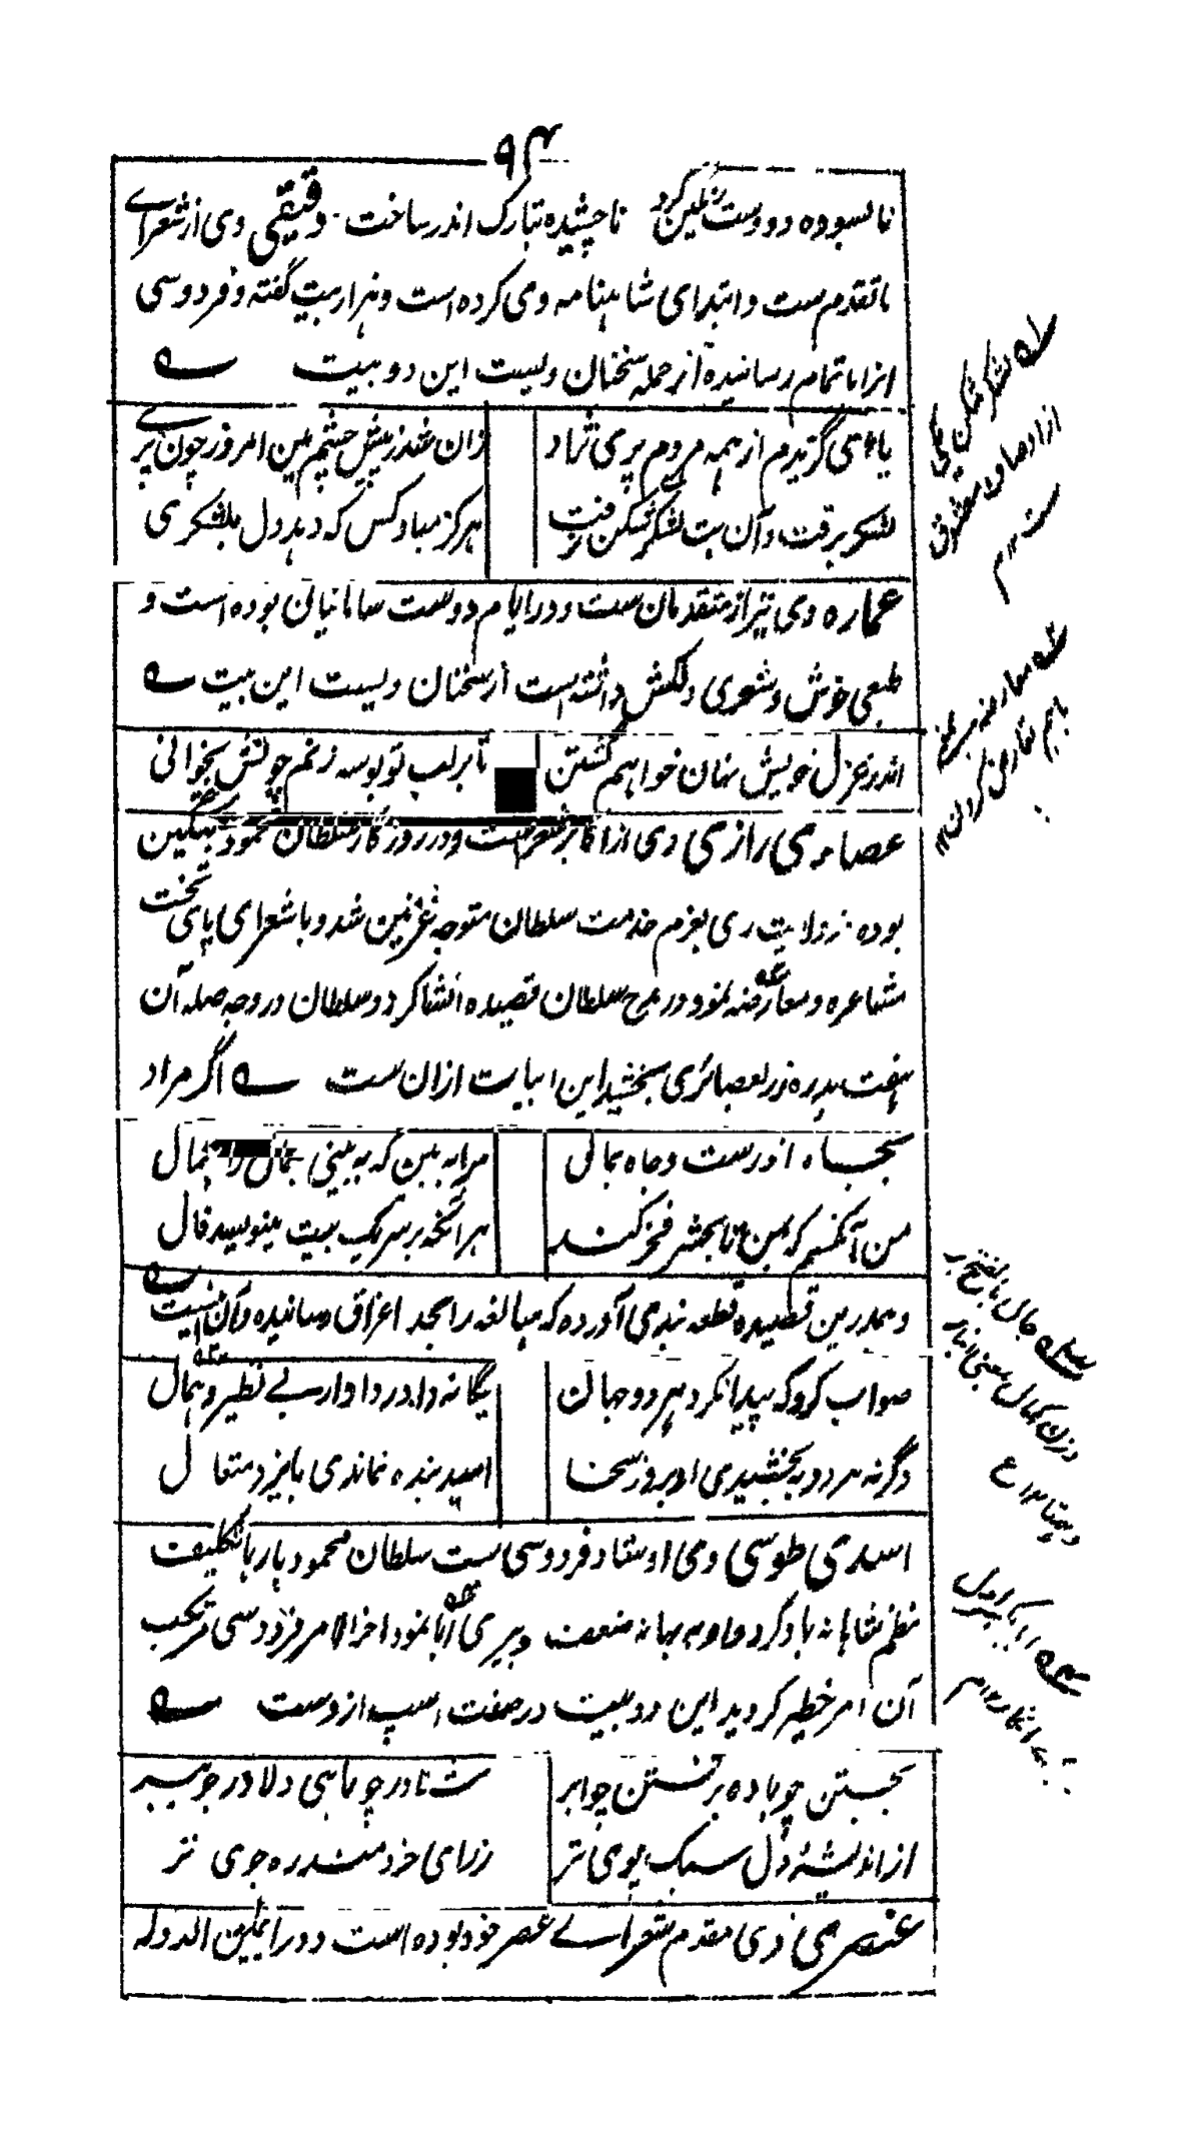 ۹۴
نابسوده دو دست رنگین کرد ناچشیده بتارک اندر ساخت دقیقی وی از شعرای
ماتقدم ست و ابتدای شاهنامه وی کرده است و هزار بیت گفته و فردوسی
انرا باتمام رسانیده از جمله سخنان ویست این دو بیت
یاری گزیدم از همه مردم پری نژاد زان شد ز پیش چشم من امروز چون پری
لشکر برفت و آن بت لشکر شکن برفت هرگز مباد کس که دهد دل بلشکری
عماره وی نیز از متقدمان ست و در ایام دولت سامانیان بوده است و
طبعی خوش و شعری دلکش داشته است از سخنان ویست این بیت
اندر غزل خویش نهان خواهم گشتن تا بر لب تو بوسه زنم چونش بخوانی
عصاری رازی وی از اکابر شعراست و در روزگار سلطان محمود سبکتگین
بوده از ولایت ری بعزم خدمت سلطان متوجه غزنین شد و با شعرای پای تخت
مشاعره و معارضه نمود و در مدح سلطان قصیده انشا کرد و سلطان در وجه صله آن
هفت بدره زر بعصائری بخشید این ابیات ازان ست اگر مراد
بجاه اندرست و جاه بمالی مرا به بین که به بینی جمال را بکمال
من آنکسم که بمن تا بحشر فخر کند هر آنکه بر سر یک بیت بنویسد قال
و همدرین قصیده قطعه ندی آورده که مبالغه را بحد اغراق رسانیده و آن اینست
صواب کرد که پیدا نکرد هر دو جهان یگانه دادر دادار بے نظیر و همال
وگرنه هر دو به بخشیدی او بروز سخا امید بنده نماندی بایزد متعال
اسدی طوسی وی اوستاد فردوسی ست سلطان محمود بارها تکلیف
نظم شاهنامه باو کرد و او به بهانه ضعف و پیری ابا نمود اخرالامر فردوسی مرتکب
آن امر خطیر گردید این دو بیت در صفت اسپ ازوست
بجستن چو باد و برفتن چو ابر شناور چو ماهی دلاور چو ببر
از اندیشهٔ دل سبک پوی تر ز رای خردمند ره جوی تر
عنصری وی مقدم شعرائے عصر خود بوده است و در ایام یمین الدوله